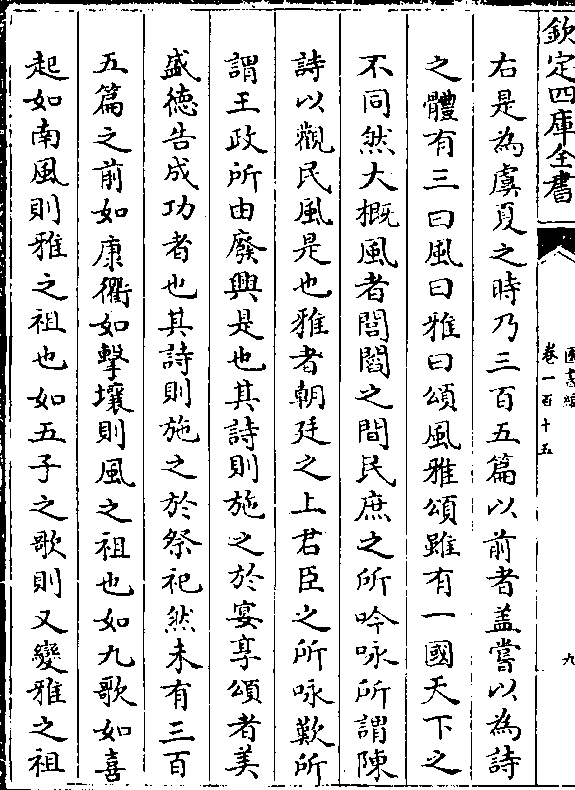 欽定四庫全書
圖書編
卷一百十五
九
右是為虞夏之時乃三百五篇以前者蓋嘗以為詩
之體有三曰風曰雅曰頌風雅頌雖有一國天下之
不同然大概風者閭閻之間民庶之所吟咏所謂陳
詩以觀民風是也雅者朝廷之上君臣之所咏歎所
謂王政所由廢興是也其詩則施之於宴享頌者美
盛德告成功者也其詩則施之於祭祀然未有三百
五篇之前如康衢如擊壤則風之祖也如九歌如喜
起如南風則雅之祖也如五子之歌則又變雅之祖